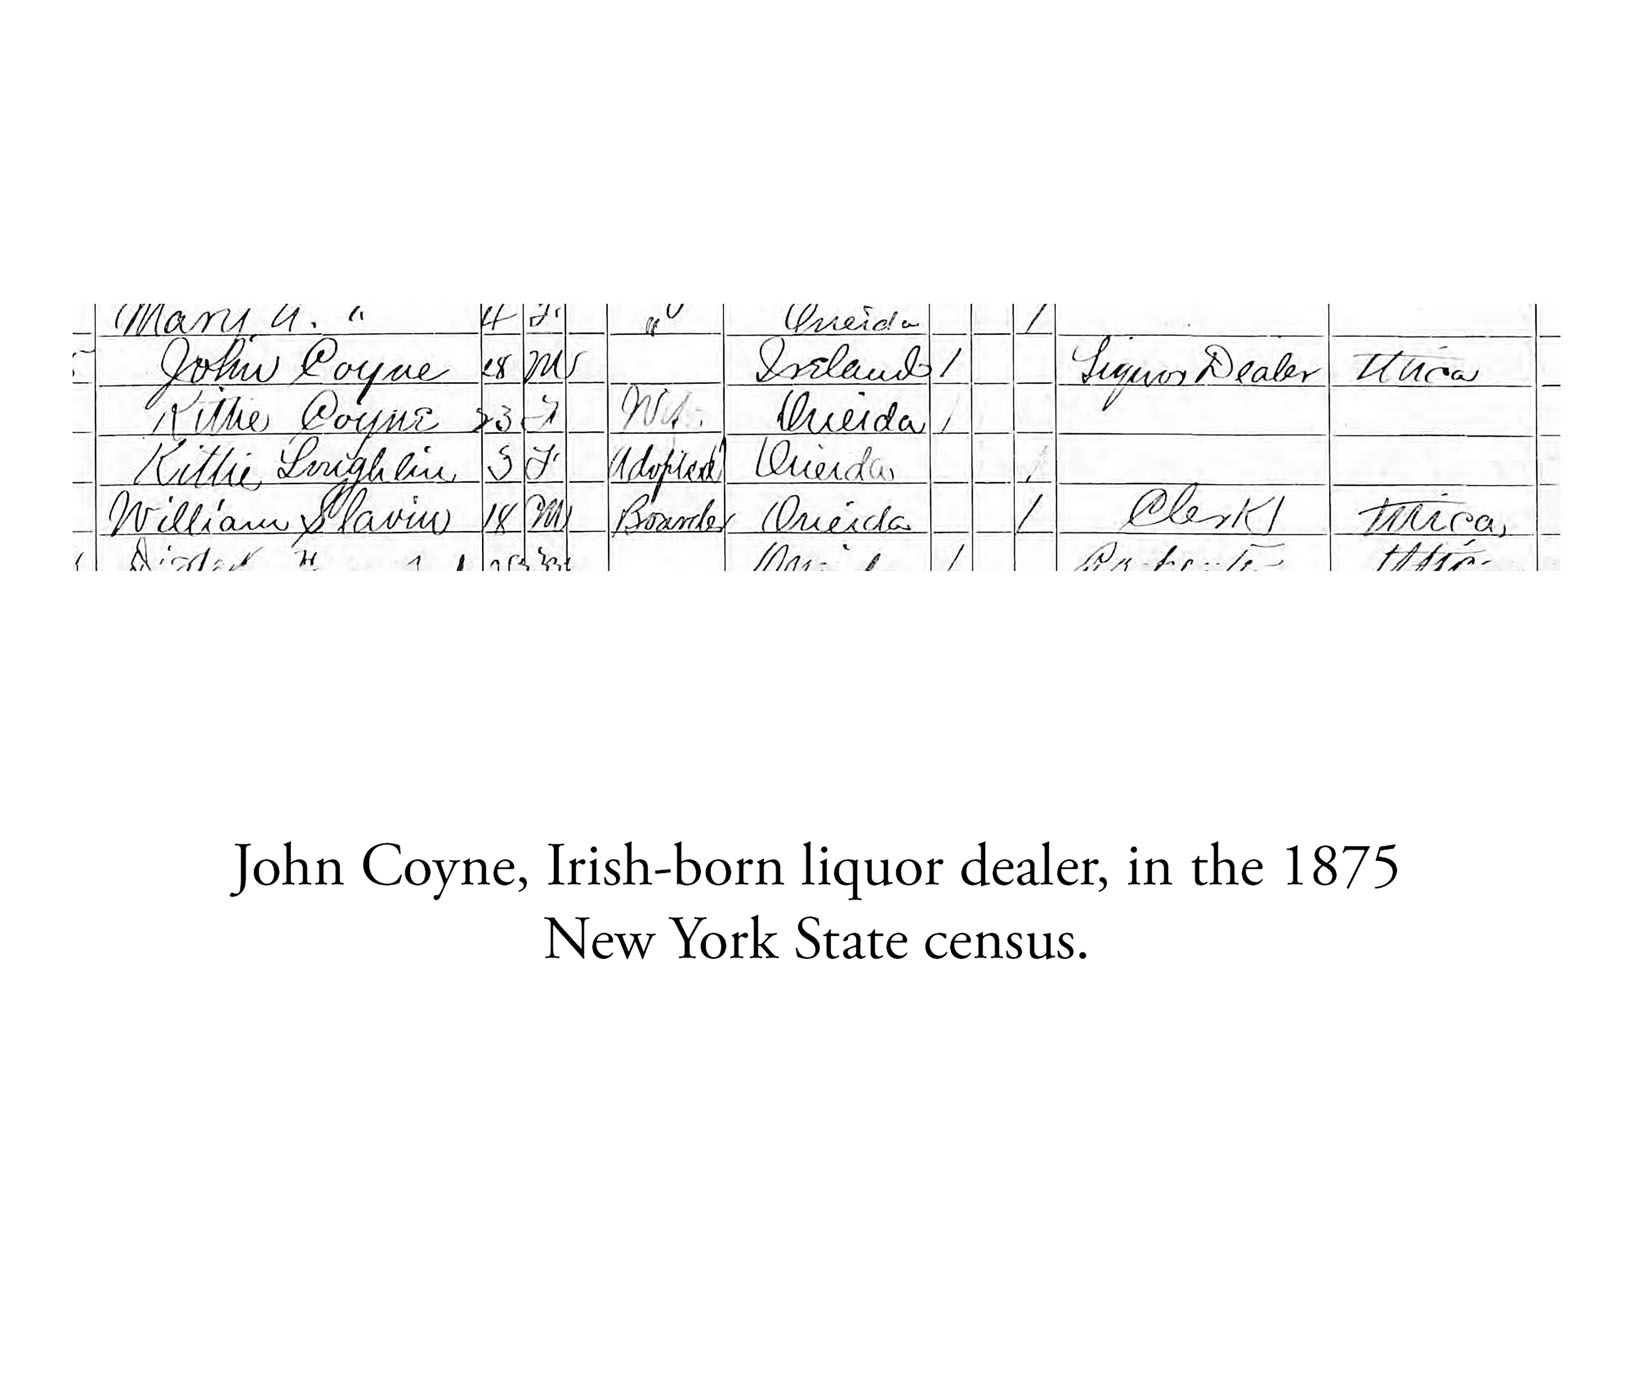 Mary A. " 4 F " Oneida 1
John Coyne 28 M Ireland 1 Liquor Dealer Utica
Kittie Coyne 23 F Wife Oneida 1
Kittie Loughlin 3 F Adopted Oneida 1
William Slavin 18 M Boarder Oneida 1 Clerk Utica
John Coyne, Irish-born liquor dealer, in the 1875
New York State census.